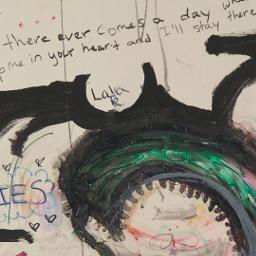 there ever comes a day wh
p me in your heart and I'll stay there
Lala
IES